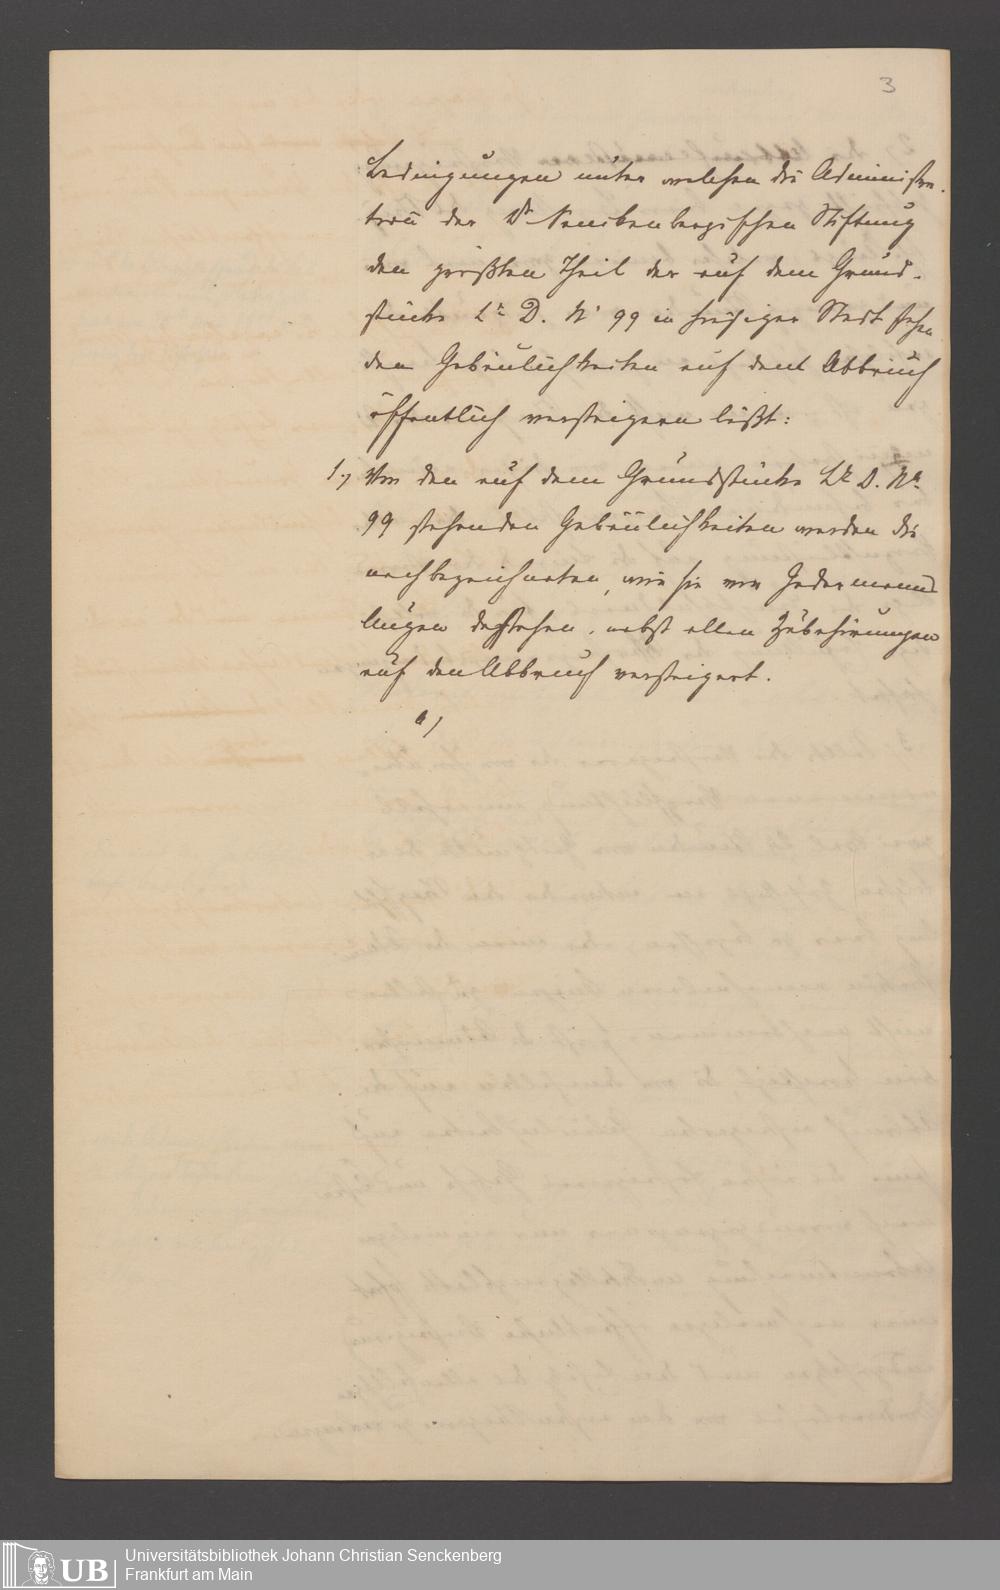 3
Bedingungen unter welchen die Administra-
tion der Dr Senckenbergischen Stiftung
den größten Theil der auf dem Grund-
stücke Lr D. No 99 in hiesiger Stadt stehen
den Gebäulichkeiten auf den Abbruch
öffentlich versteigern läßt:
1.) Von den auf dem Grundstücke Lr D. No.
99 stehenden Gebäulichkeiten werden die
nachbezeichneten, wie sie von Jedermanns
Augen dastehen, nebst allen Zubehörungen
auf den Abbruch versteigert.
a)
UB
Universitätsbibliothek Johann Christian Senckenberg
Frankfurt am Main